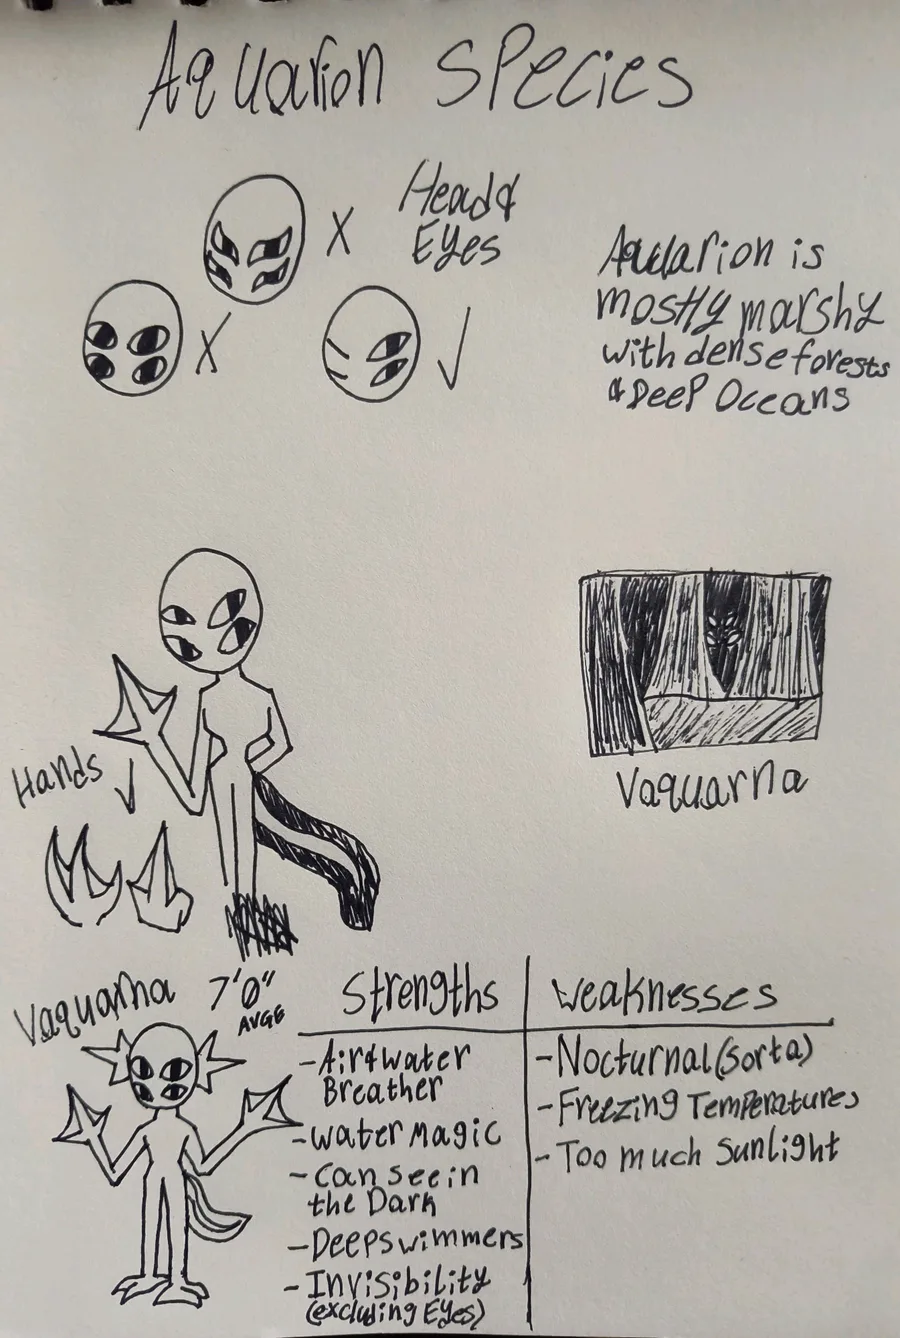 Aquarion Species
Head &
Eyes
X
X
✓
Aqularion is
mostly marshy
with dense forests
& Deep Oceans
Hands
✓
Vaquarna
Vaquarna 7'0"
AVGE
Strengths
- Air & water
Breather
- Water Magic
- Can see in
the Dark
- Deep swimmers
- Invisibility
(excluding Eyes)
Weaknesses
- Nocturnal (sorta)
- Freezing Temperatures
- Too much Sunlight